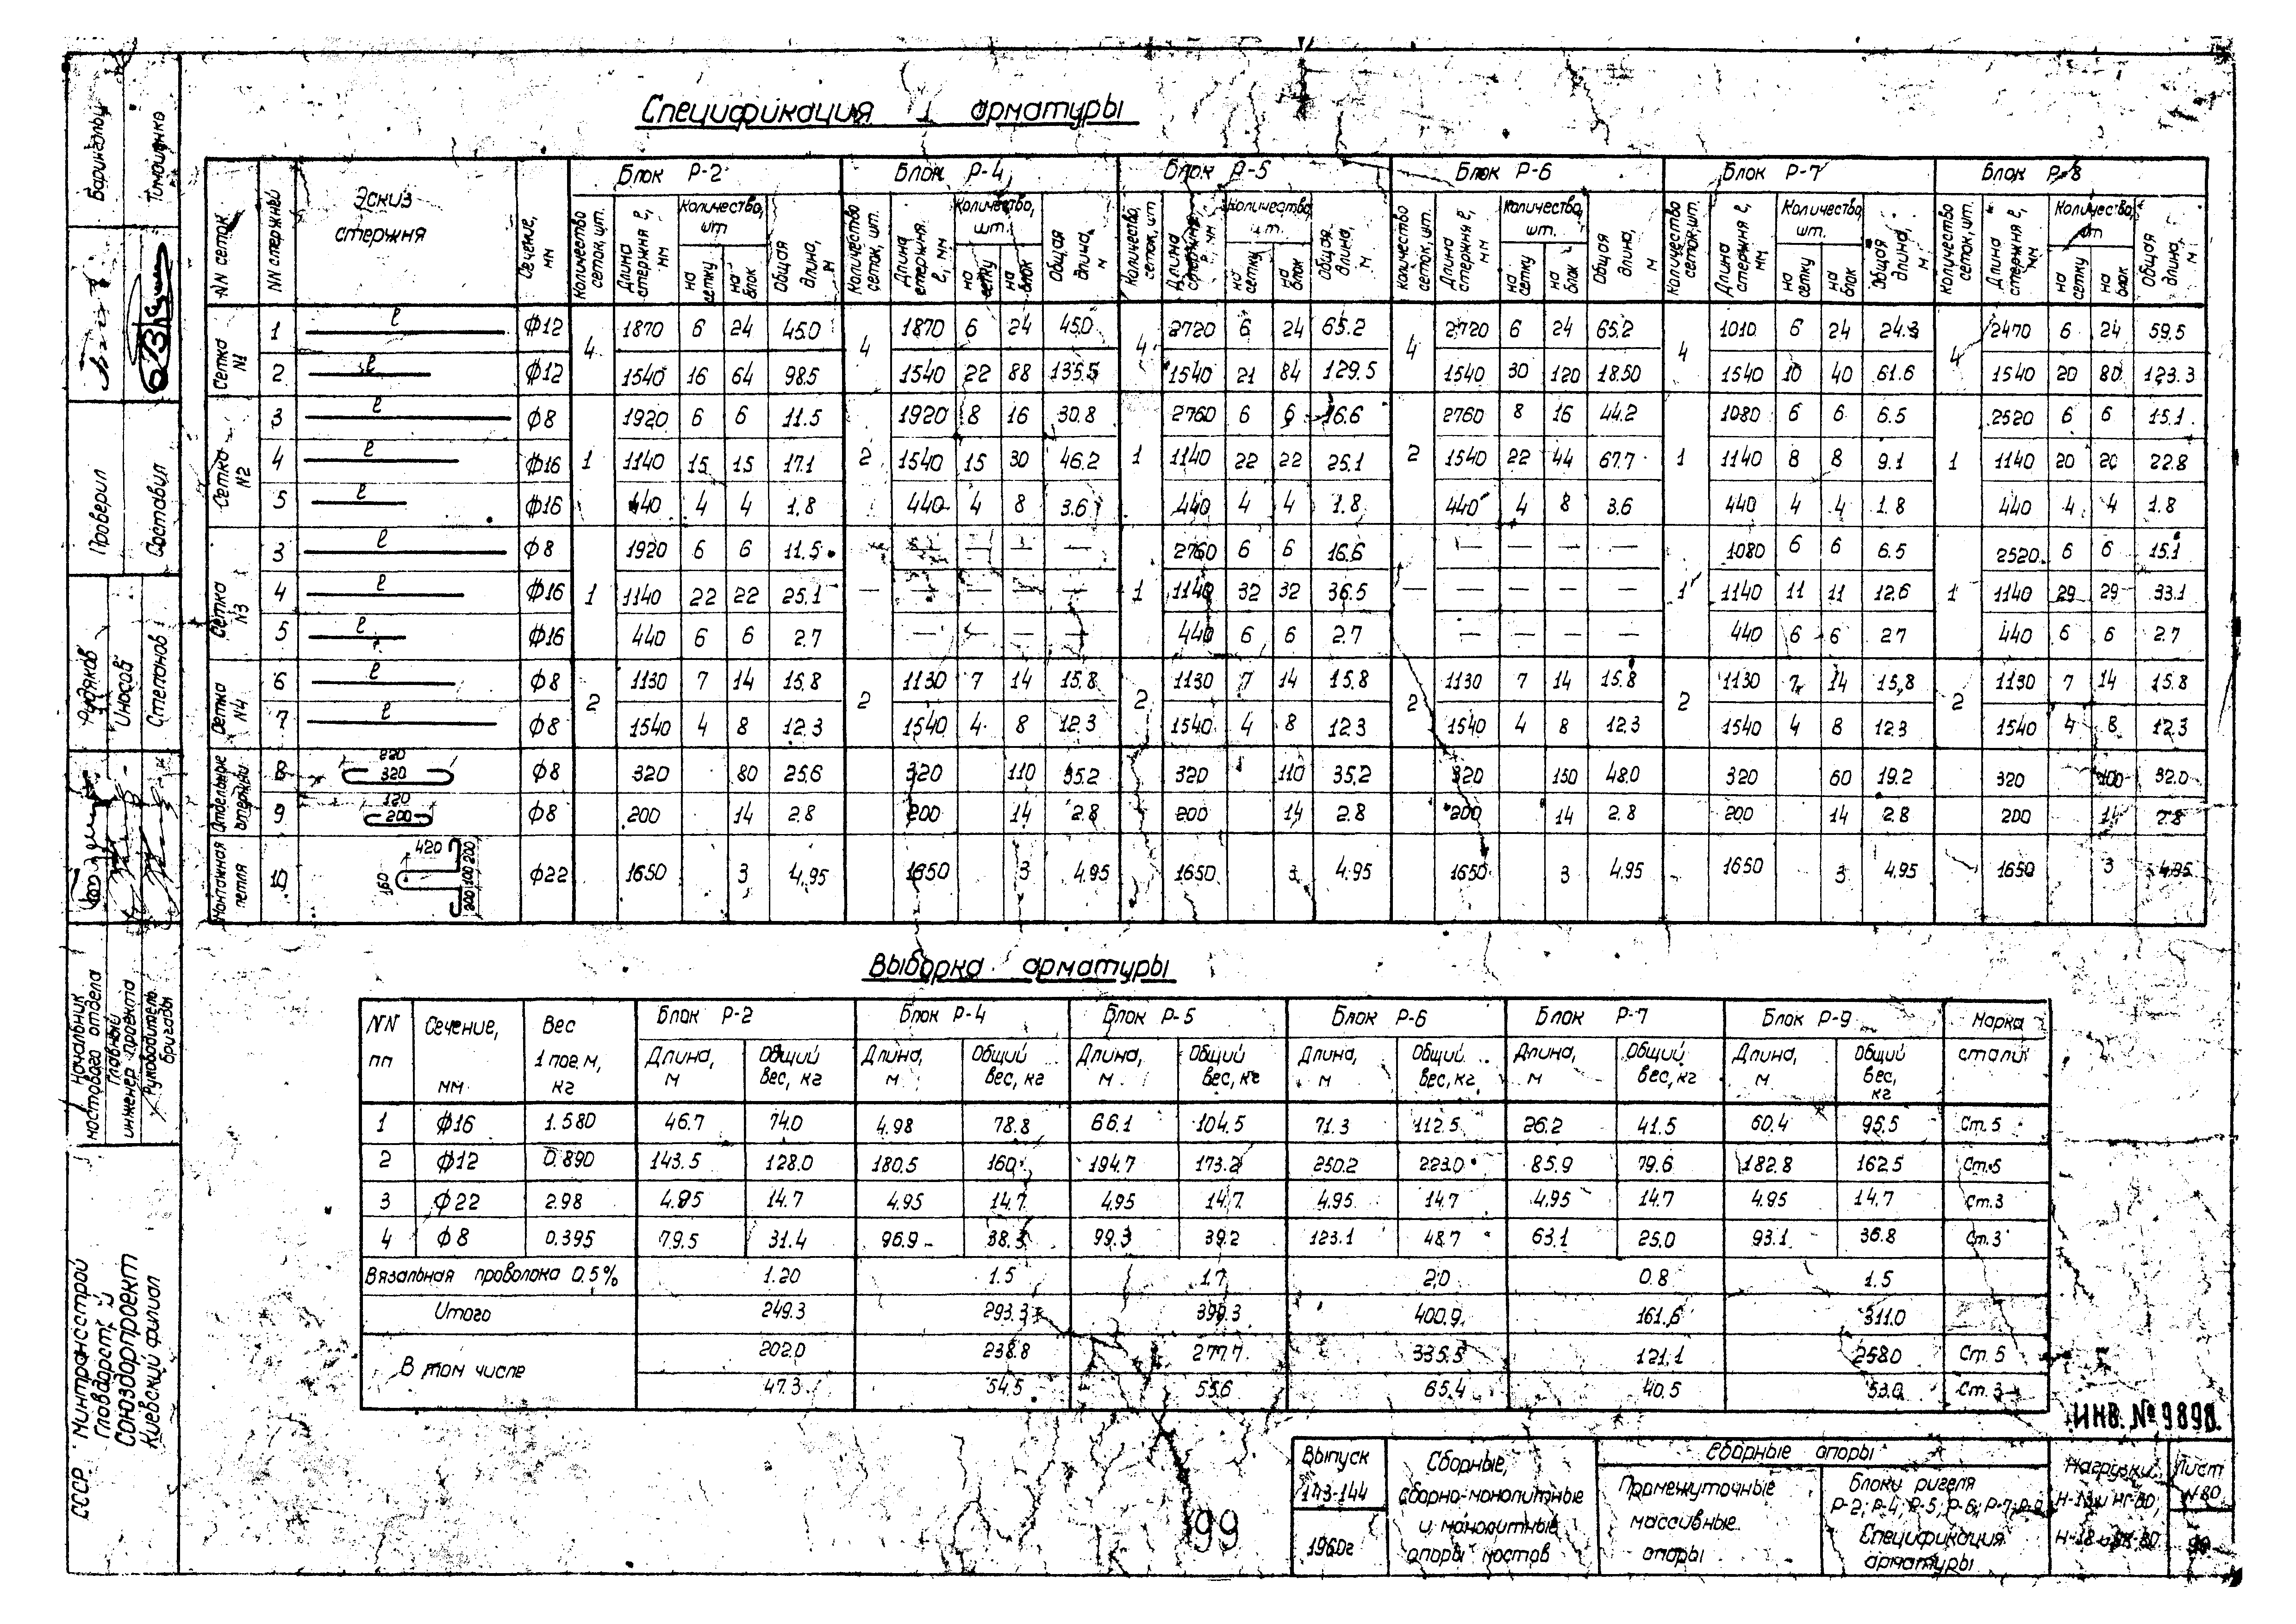 Спецификация арматуры
NN сеток | NN стержней | Эскиз стержня | Сечение, мм | Блок Р-2 | Блок Р-4 | Блок Р-5 | Блок Р-6 | Блок Р-7 | Блок Р-8
Количество сеток, шт. | Длина стержня ℓ, мм | Количество, шт | на сетку | на блок | Общая длина, м
Количество сеток, шт. | Длина стержня ℓ, мм | Количество, шт. | на сетку | на блок | Общая длина, м
Количество сеток, шт | Длина стержня ℓ, мм | Количество шт. | на сетку | на блок | Общая длина, м
Количество сеток, шт. | Длина стержня ℓ, мм | Количество, шт. | на сетку | на блок | Общая длина, м
Количество сеток, шт. | Длина стержня ℓ, мм | Количество шт. | на сетку | на блок | Общая длина, м
Количество сеток, шт. | Длина стержня ℓ, мм | Количество, шт | на сетку | на блок | Общая длина, м
Сетка N1 | 1 | ℓ | ф12 | 4 | 1870 | 6 | 24 | 45.0 | 4 | 1870 | 6 | 24 | 45.0 | 4 | 2720 | 6 | 24 | 65.2 | 4 | 2720 | 6 | 24 | 65.2 | 4 | 1010 | 6 | 24 | 24.3 | 4 | 2470 | 6 | 24 | 59.5
2 | ℓ | ф12 | 1540 | 16 | 64 | 98.5 | 1540 | 22 | 88 | 135.5 | 1540 | 21 | 84 | 129.5 | 1540 | 30 | 120 | 18.50 | 1540 | 10 | 40 | 61.6 | 1540 | 20 | 80 | 123.3
Сетка N2 | 3 | ℓ | ф8 | 1920 | 6 | 6 | 11.5 | 1920 | 8 | 16 | 30.8 | 2760 | 6 | 6 | 16.6 | 2760 | 8 | 16 | 44.2 | 1080 | 6 | 6 | 6.5 | 2520 | 6 | 6 | 15.1
4 | ℓ | ф16 | 1 | 1140 | 15 | 15 | 17.1 | 2 | 1540 | 15 | 30 | 46.2 | 1 | 1140 | 22 | 22 | 25.1 | 2 | 1540 | 22 | 44 | 67.7 | 1 | 1140 | 8 | 8 | 9.1 | 1 | 1140 | 20 | 20 | 22.8
5 | ℓ | ф16 | 440 | 4 | 4 | 1.8 | 440 | 4 | 8 | 3.6 | 440 | 4 | 4 | 1.8 | 440 | 4 | 8 | 3.6 | 440 | 4 | 4 | 1.8 | 440 | 4 | 4 | 1.8
Сетка N3 | 3 | ℓ | ф8 | 1920 | 6 | 6 | 11.5 | — | — | — | — | 2760 | 6 | 6 | 16.6 | — | — | — | — | 1080 | 6 | 6 | 6.5 | 2520 | 6 | 6 | 15.1
4 | ℓ | ф16 | 1 | 1140 | 22 | 22 | 25.1 | — | — | — | — | — | 1 | 1140 | 32 | 32 | 36.5 | — | — | — | — | — | 1 | 1140 | 11 | 11 | 12.6 | 1 | 1140 | 29 | 29 | 33.1
5 | ℓ | ф16 | 440 | 6 | 6 | 2.7 | — | — | — | — | 440 | 6 | 6 | 2.7 | — | — | — | — | 440 | 6 | 6 | 2.7 | 440 | 6 | 6 | 2.7
Сетка N4 | 6 | ℓ | ф8 | 2 | 1130 | 7 | 14 | 15.8 | 2 | 1130 | 7 | 14 | 15.8 | 2 | 1130 | 7 | 14 | 15.8 | 2 | 1130 | 7 | 14 | 15.8 | 2 | 1130 | 7 | 14 | 15.8 | 2 | 1130 | 7 | 14 | 15.8
7 | ℓ | ф8 | 1540 | 4 | 8 | 12.3 | 1540 | 4 | 8 | 12.3 | 1540 | 4 | 8 | 12.3 | 1540 | 4 | 8 | 12.3 | 1540 | 4 | 8 | 12.3 | 1540 | 4 | 8 | 12.3
Отдельные стержни | 8 | 220 320 | ф8 | 320 | 80 | 25.6 | 320 | 110 | 35.2 | 320 | 110 | 35.2 | 320 | 150 | 48.0 | 320 | 60 | 19.2 | 320 | 100 | 32.0
9 | 120 200 | ф8 | 200 | 14 | 2.8 | 200 | 14 | 2.8 | 200 | 14 | 2.8 | 200 | 14 | 2.8 | 200 | 14 | 2.8 | 200 | 14 | 2.8
Монтажная петля | 10 | 420 160 200 100 200 | ф22 | 1650 | 3 | 4.95 | 1650 | 3 | 4.95 | 1650 | 3 | 4.95 | 1650 | 3 | 4.95 | 1650 | 3 | 4.95 | 1650 | 3 | 4.95
Выборка арматуры
NN пп | Сечение, мм | Вес 1 пог. м, кг | Блок Р-2 | Блок Р-4 | Блок Р-5 | Блок Р-6 | Блок Р-7 | Блок Р-9 | Марка стали
Длина, м | Общий вес, кг | Длина, м | Общий вес, кг | Длина, м | Общий вес, кг | Длина, м | Общий вес, кг | Длина, м | Общий вес, кг | Длина, м | Общий вес, кг
1 | ф16 | 1.580 | 46.7 | 74.0 | 4.98 | 78.8 | 66.1 | 104.5 | 71.3 | 112.5 | 26.2 | 41.5 | 60.4 | 95.5 | Ст. 5
2 | ф12 | 0.890 | 143.5 | 128.0 | 180.5 | 160 | 194.7 | 173.2 | 250.2 | 223.0 | 85.9 | 79.6 | 182.8 | 162.5 | Ст. 5
3 | ф22 | 2.98 | 4.95 | 14.7 | 4.95 | 14.7 | 4.95 | 14.7 | 4.95 | 14.7 | 4.95 | 14.7 | 4.95 | 14.7 | Ст. 3
4 | ф8 | 0.395 | 79.5 | 31.4 | 96.9 | 38.3 | 99.3 | 39.2 | 123.1 | 48.7 | 63.1 | 25.0 | 93.1 | 36.8 | Ст. 3
Вязальная проволока 0.5% | 1.20 | 1.5 | 1.7 | 2.0 | 0.8 | 1.5
Итого | 249.3 | 293.3 | 400.9 | 161.6 | 311.0
В том числе | 202.0 | 238.8 | 277.7 | 335.5 | 121.1 | 258.0 | Ст. 5
47.3 | 54.5 | 55.6 | 65.4 | 40.5 | 53.0 | Ст. 3
Инв. № 9898.
99
Выпуск 143-144
1960г
Сборные,
сборно-монолитные
и монолитные
опоры мостов
Сборные опоры
Промежуточные
массивные
опоры
Блоки ригеля
Р-2; Р-4; Р-5; Р-6; Р-7; Р-9
Спецификация
арматуры
Нагрузки
Лист
Тимошенко
Проверил
Составил
Рудяков
Степанов
Начальник
мостового отдела
Главный
инженер проекта
Руководитель
бригады
СССР Минтрансстрой
Главдорстрой
Союздорпроект
Киевский филиал